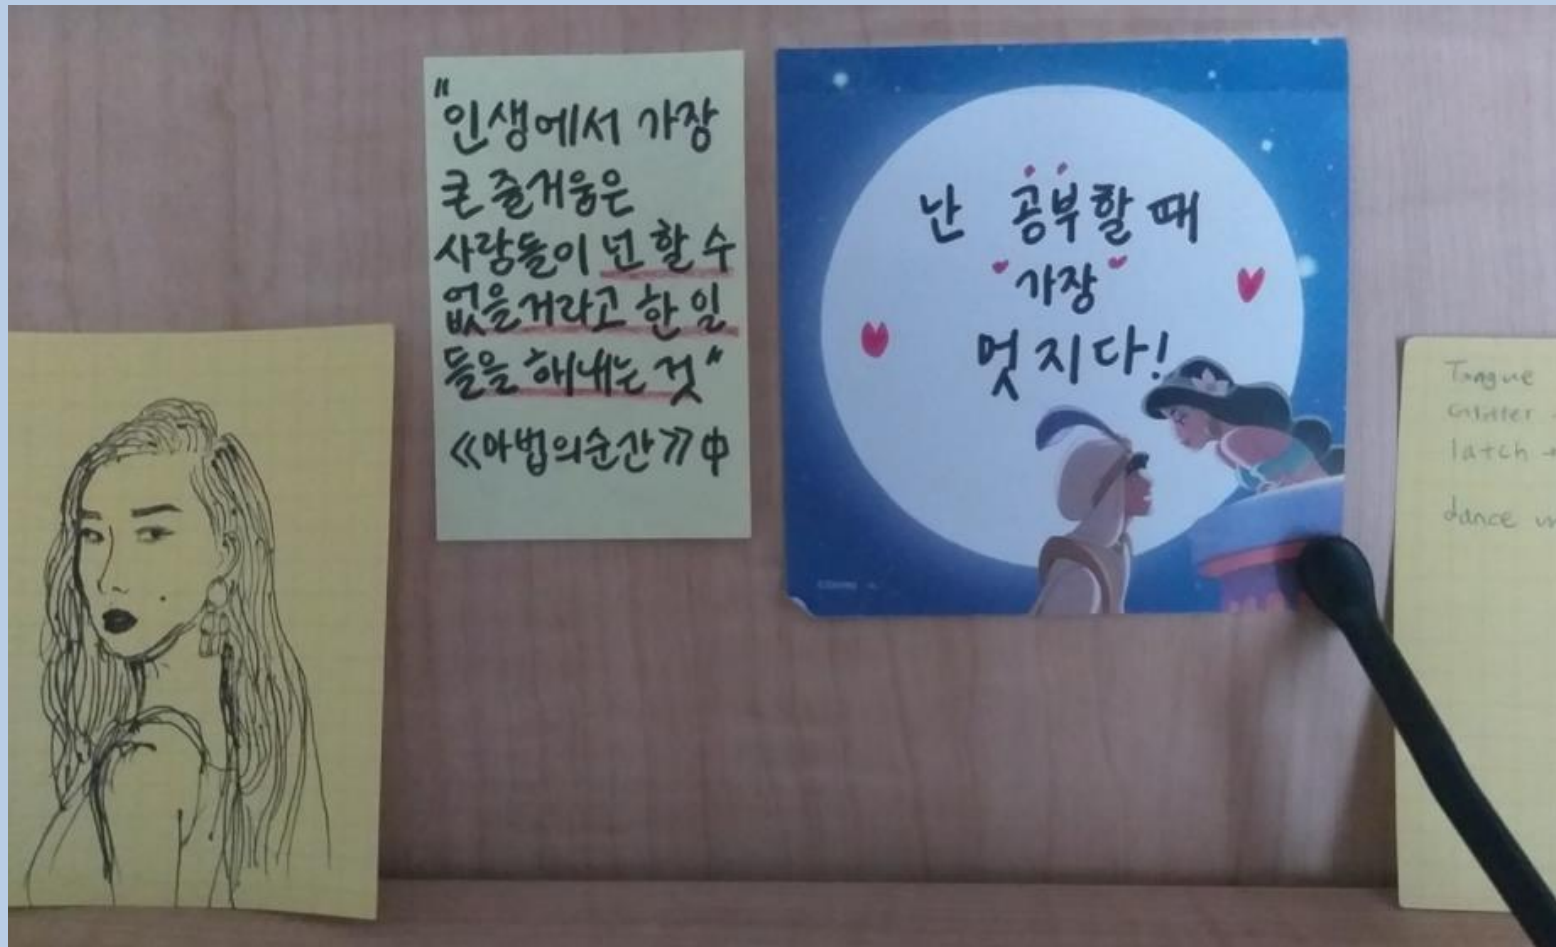 "인생에서 가장
큰 즐거움은
사람들이 넌 할 수
없을거라고 한 일
들을 해내는 것"
《마법의순간》中
난 공부할 때
가장
멋지다!
Tongue
latch →
dance